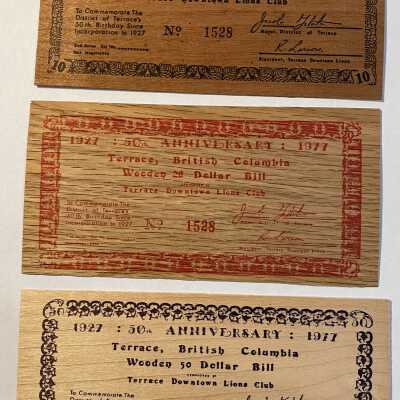 Terrace Downtown Lions Club
To Commemorate The
District of Terrace's
50th Birthday Since
Incorporation in 1927
Nº 1528
Mayor, District of Terrace
President, Terrace Downtown Lions
10
10
1927 : 50th ANNIVERSARY : 1977
Terrace, British Columbia
Wooden 20 Dollar Bill
Terrace Downtown Lions Club
To Commemorate The
District of Terrace's
50th Birthday Since
Incorporation in 1927
Nº 1528
1927 : 50th ANNIVERSARY : 1977
Terrace, British Columbia
Wooden 50 Dollar Bill
Terrace Downtown Lions Club
To Commemorate The
District of Terrace's